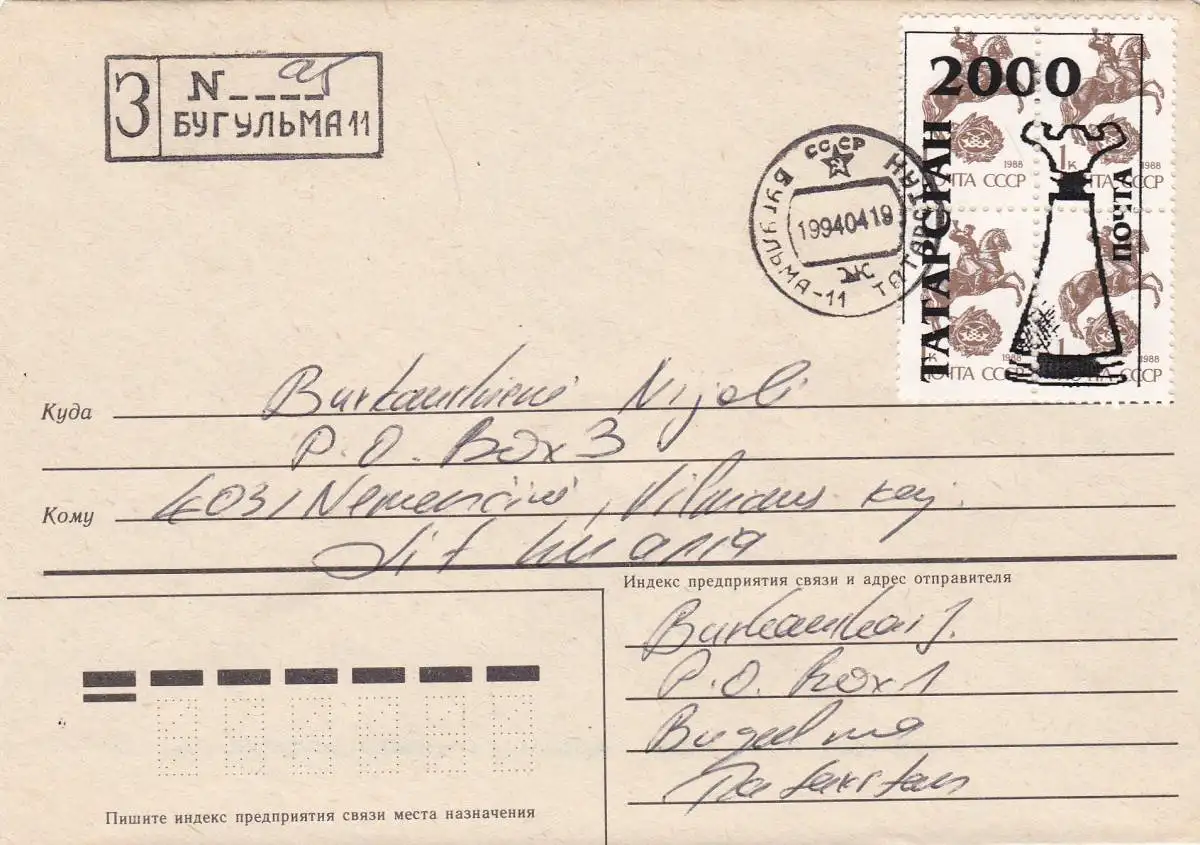 З N 95
БУГУЛЬМА 11
СССР
БУГУЛЬМА-11 ТАТАРСТАН
19940419
2000
ТАТАРСРАН
ПОЧТА
1988 1988
1к
ПОЧТА СССР ПОЧТА СССР
1988 1988
ПОЧТА СССР ПОЧТА СССР
Куда
P.O. Box 3
Кому 4031 Nemenčinė, Vilniaus raj.
Lithuania
Индекс предприятия связи и адрес отправителя
P.O. Box 1
Bugulma
Tatarstan
Пишите индекс предприятия связи места назначения